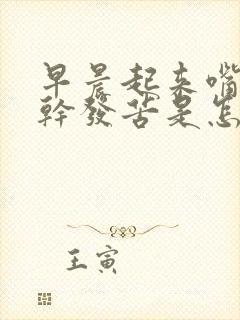 早晨起来嘴
幹發苦是怎
王寅